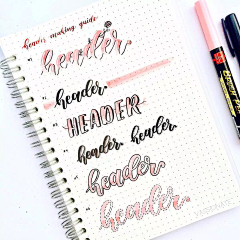 header making guide
header
header.
HEADER
header. header.
header.
header.